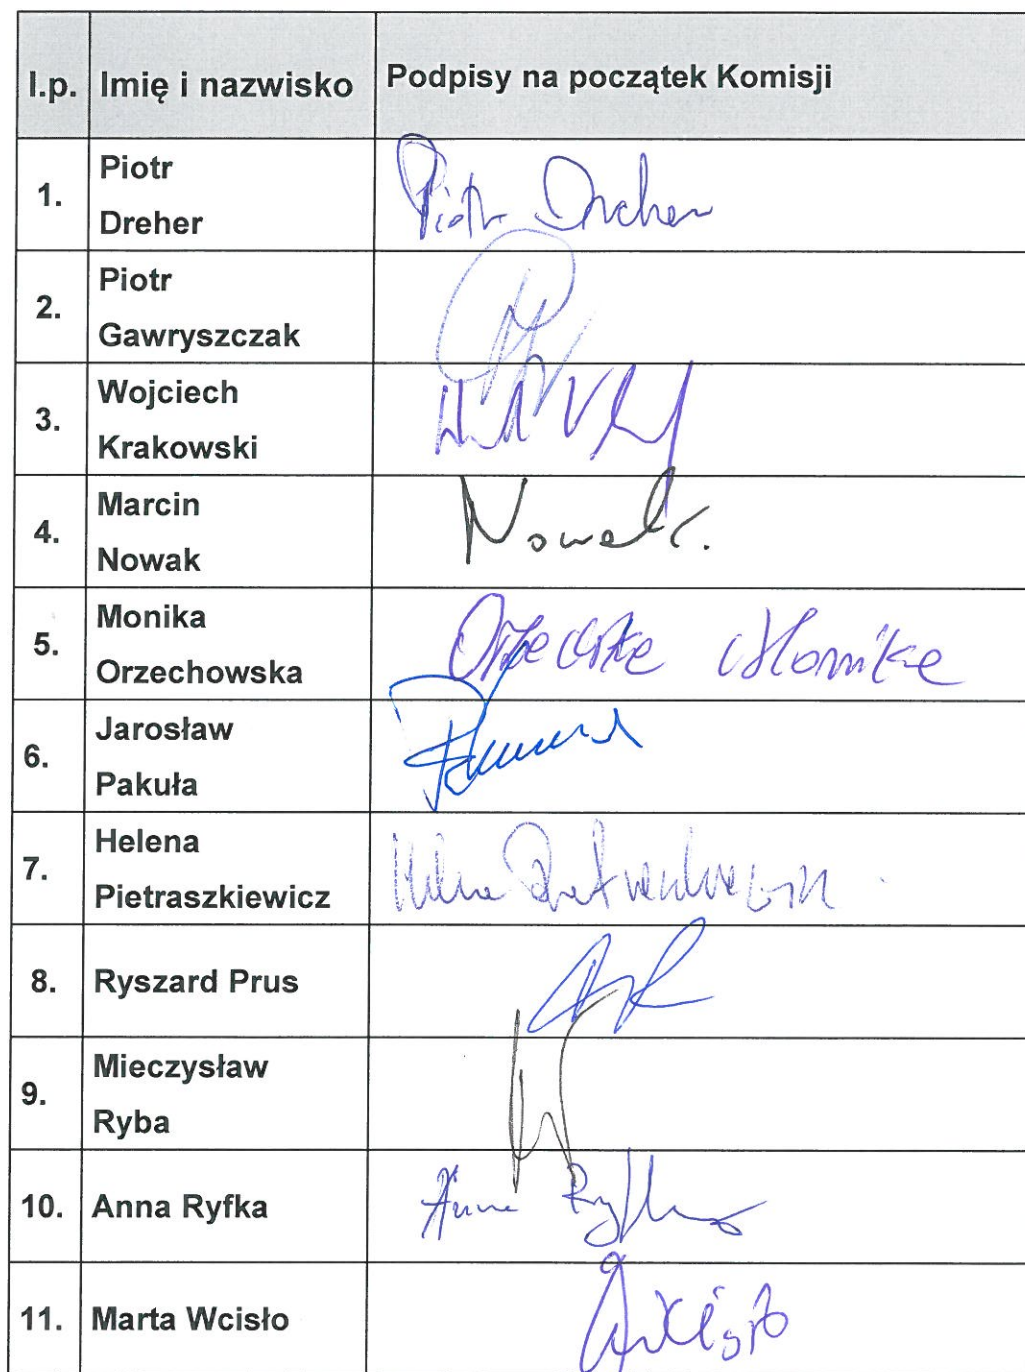 l.p. Imię i nazwisko Podpisy na początek Komisji
1. Piotr Dreher Piotr Dreher
2. Piotr Gawryszczak
3. Wojciech Krakowski
4. Marcin Nowak Nowak.
5. Monika Orzechowska Monika
6. Jarosław Pakuła
7. Helena Pietraszkiewicz
8. Ryszard Prus
9. Mieczysław Ryba
10. Anna Ryfka Anna Ryfka
11. Marta Wcisło Wcisło